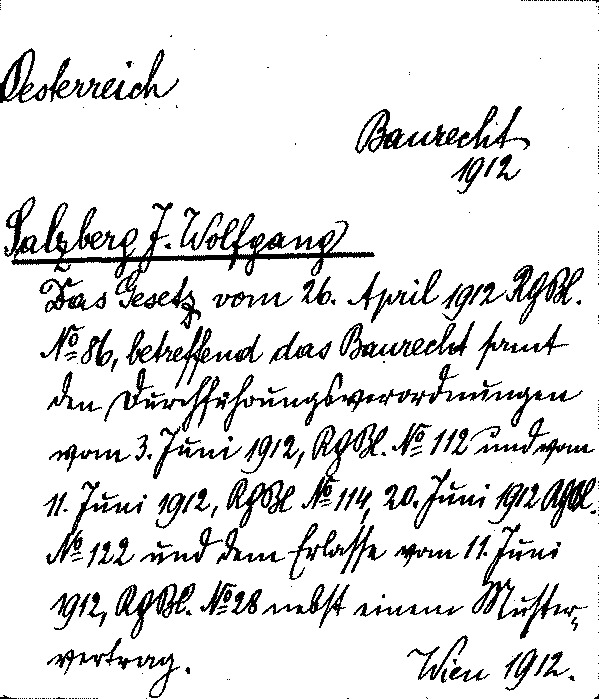 Oesterreich
Baurecht
1912
Salzberg J. Wolfgang
Das Gesetz vom 26. April 1912 RGBl.
No 86, betreffend das Baurecht samt
den Durchführungsverordnungen
vom 3. Juni 1912, RGBl. No 112 und vom
11. Juni 1912, RGBl No 114, 20. Juni 1912 RGBl.
No 122 und dem Erlasse vom 11. Juni
1912, RGBl. No 28 nebst einem Muster-
vertrag. Wien 1912.